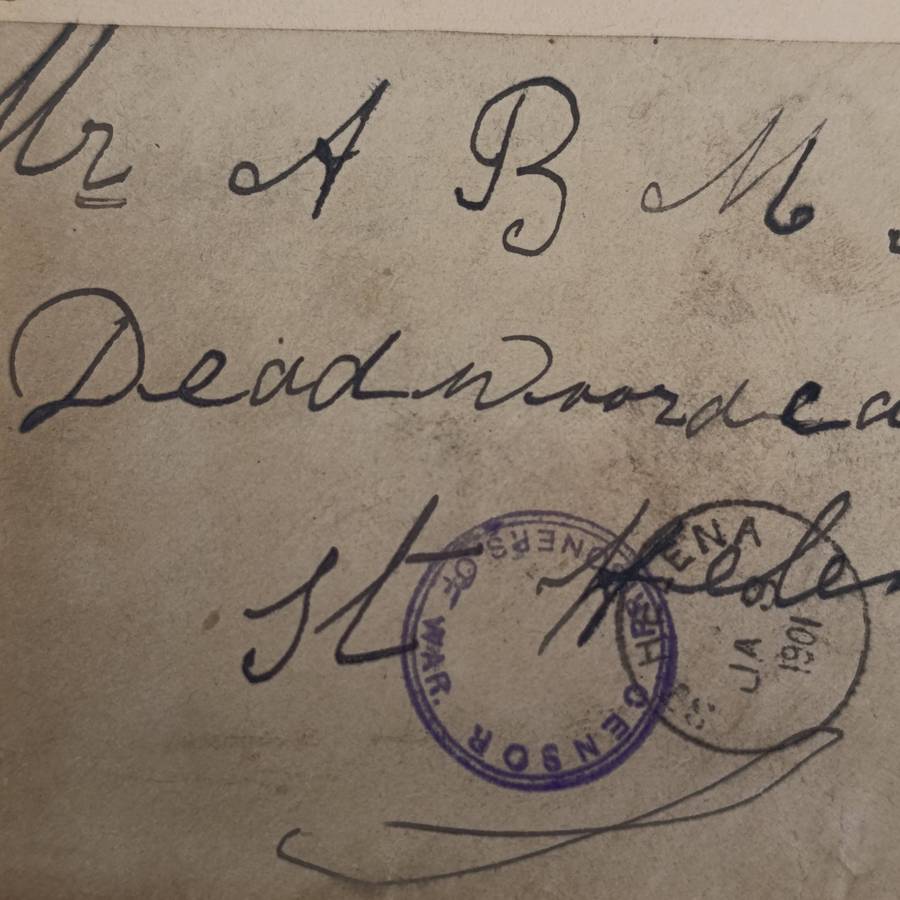 Mr A B M
Deadwoord ca
St Helen
PRISONERS OF WAR. CENSOR
ST. HELENA
JA
1901